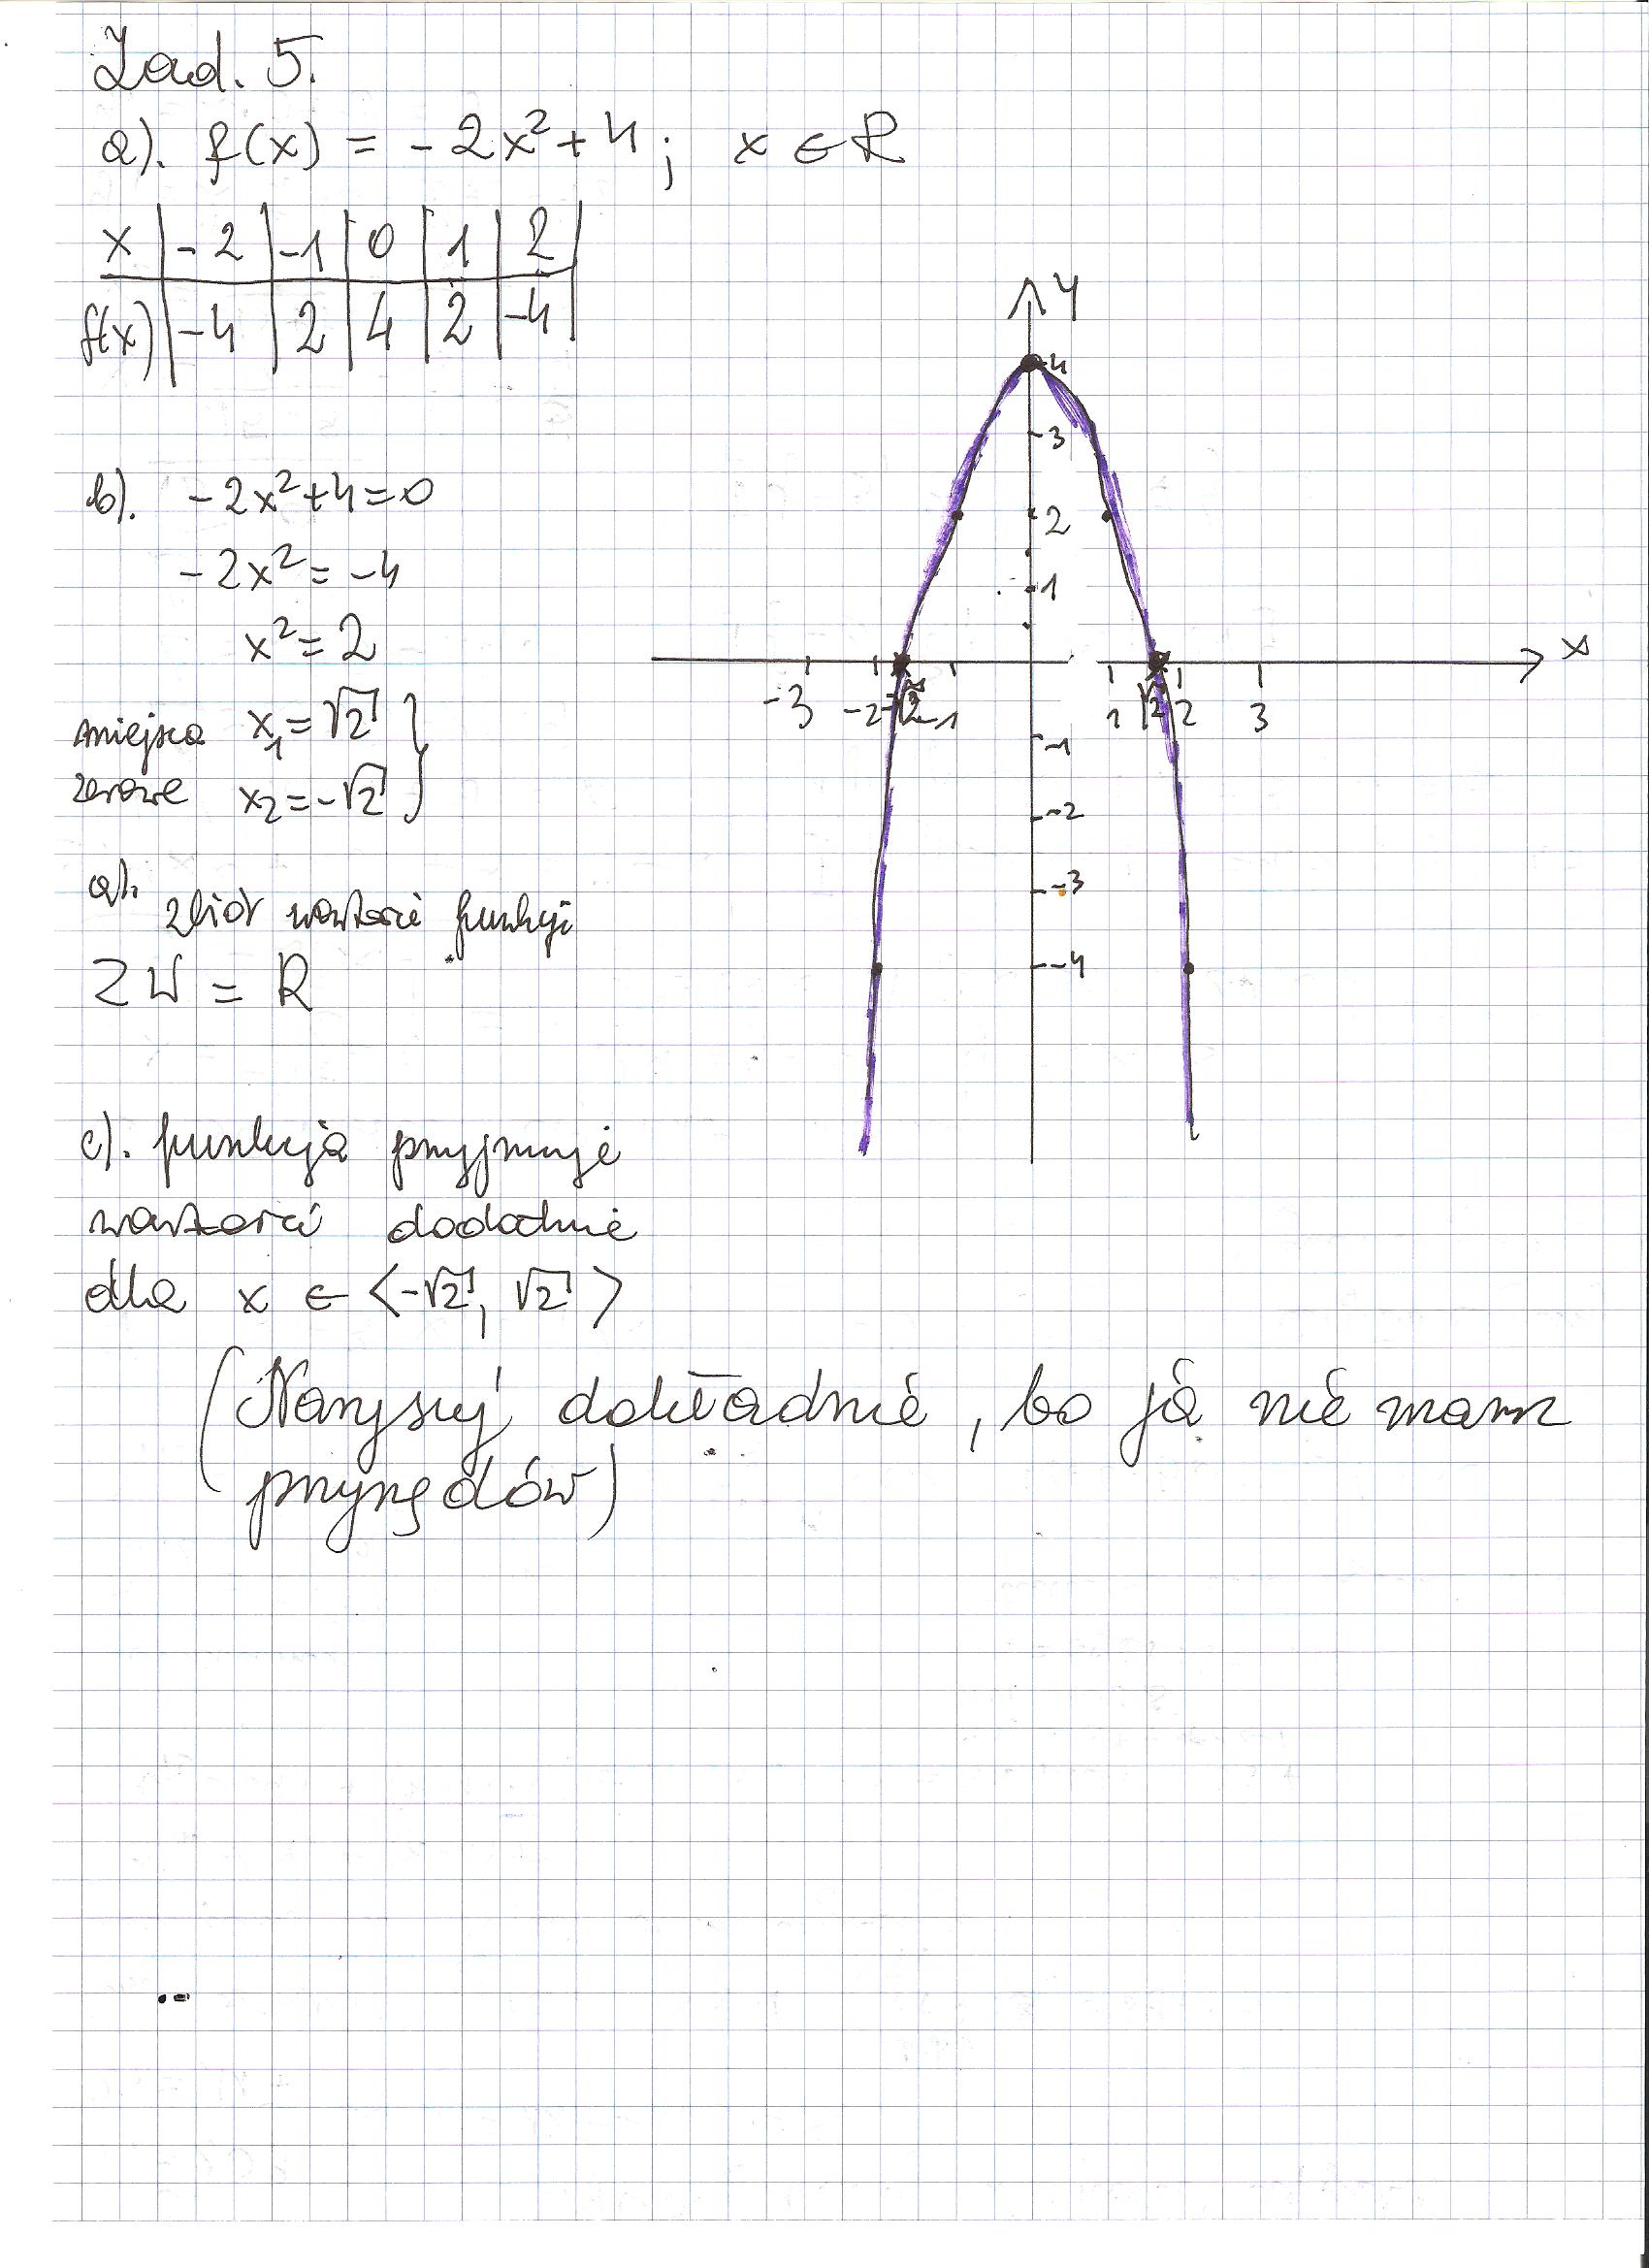 Zad. 5.
a). f(x) = -2x²+4; x ∈ R
x | -2 | -1 | 0 | 1 | 2
f(x) | -4 | 2 | 4 | 2 | -4
b). -2x²+4=0
-2x² = -4
x² = 2
miejsca x₁ = √2 }
zerowe x₂ = -√2 }
a). zbiór wartości funkcji
ZW = R
c). funkcja przyjmuje
wartości dodatnie
dla x ∈ <-√2, √2>
(Narysuj dokładnie, bo ja nie mam
przyrządów)
Y
4
3
2
1
x
-3 -2 -√2 -1 1 √2 2 3
-1
-2
-3
-4